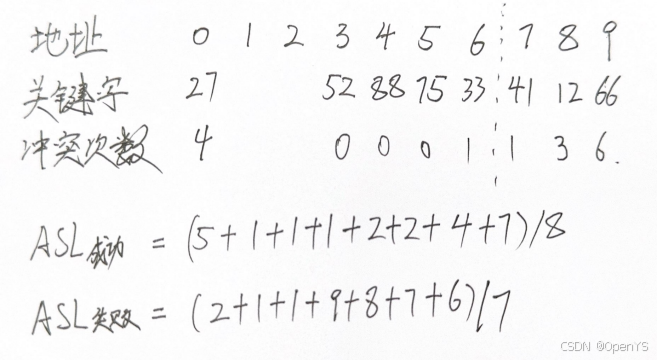 地址 0 1 2 3 4 5 6 7 8 9
关键字 27 52 88 75 33 41 12 66
冲突次数 4 0 0 0 1 1 3 6.
ASL成功 = (5+1+1+1+2+2+4+7)/8
ASL失败 = (2+1+1+9+8+7+6)/7
CSDN @OpenYS